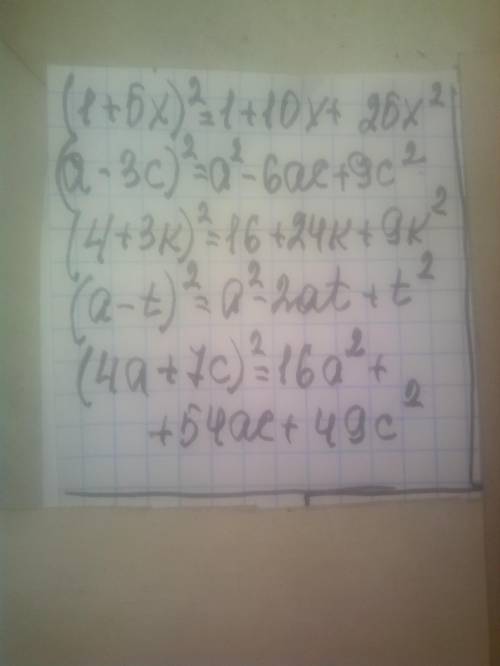 (1+5x)²=1+10x+ 25x²
(a-3c)²=a²-6ac+9c²
(4+3к)²=16+24к+9к²
(a-t)²=a²-2at+t²
(4a+7c)²=16a²+
+54ac+49c²